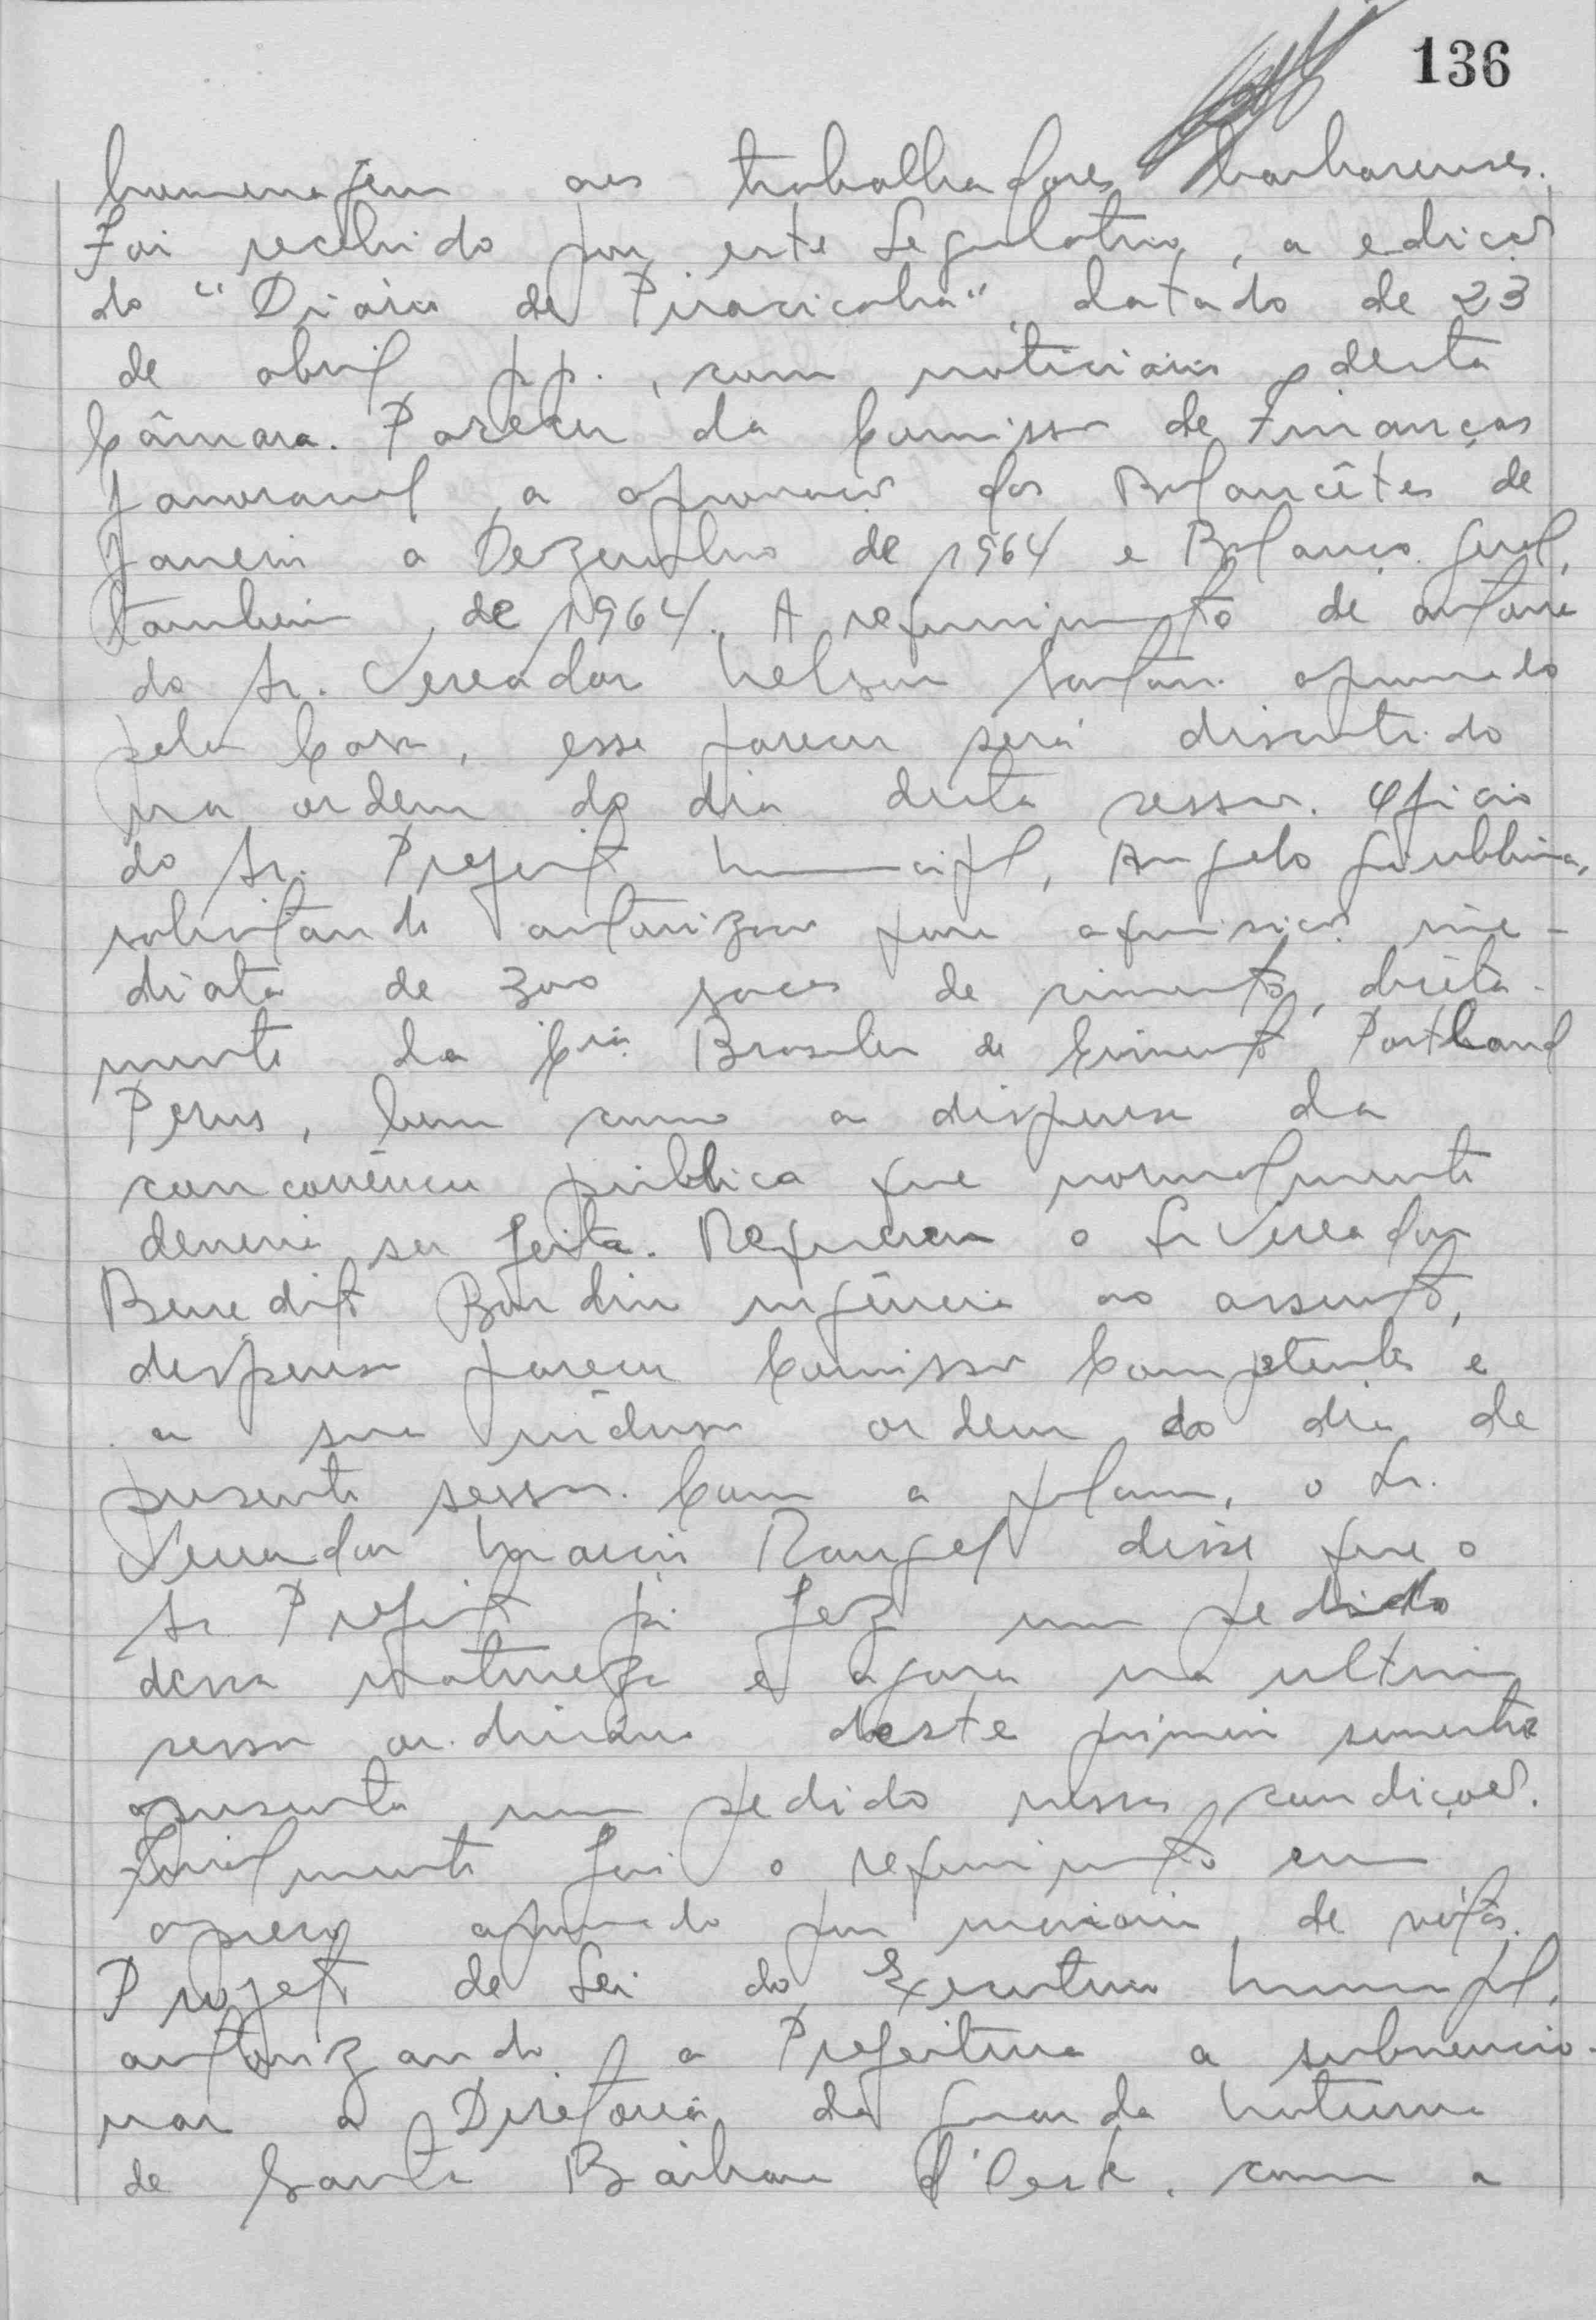 136
homenagem aos trabalhadores barbarenses.
Foi recebido por este Legislativo, a edição
do "Diário de Piracicaba", datado de 23
de abril pp., com noticiário desta
Câmara. Parecer da Comissão de Finanças
favoravel a aprovação dos Balancêtes de
Janeiro a Dezembro de 1964 e Balanço Geral,
tambem de 1964. A requerimento de autoria
do Sr. Vereador Nelson aprovado
pela Casa, esse parecer será discutido
na ordem do dia desta sessão. Oficio
do Sr. Prefeito Municipal, Angelo Giubbina,
solicitando autorização para aquisição ime-
diata de sacos de cimento, direta-
mente da Cia. Brasileira de Cimento Portland
Perus, bem como a dispensa da
concorrência pública que normalmente
deveria ser feita. Requereu o Sr Vereador
Benedito urgência ao assunto,
dispensa parecer Comissão Competente e
a sua inclusão ordem do dia de
presente sessão. Com a palavra, o Sr.
Vereador Rangel disse que o
Sr Prefeito já fez um pedido
dessa natureza e agora na ultima
sessão ordinária deste primeiro semestre
apresenta um pedido nessas condições.
Finalmente foi o requerimento em
apreço aprovado por maioria de votos.
Projeto de Lei do Executivo Municipal,
autorizando a Prefeitura a subvencio-
nar a Diretoria da Guarda Noturna
de Santa Bárbara d'Oeste, com a